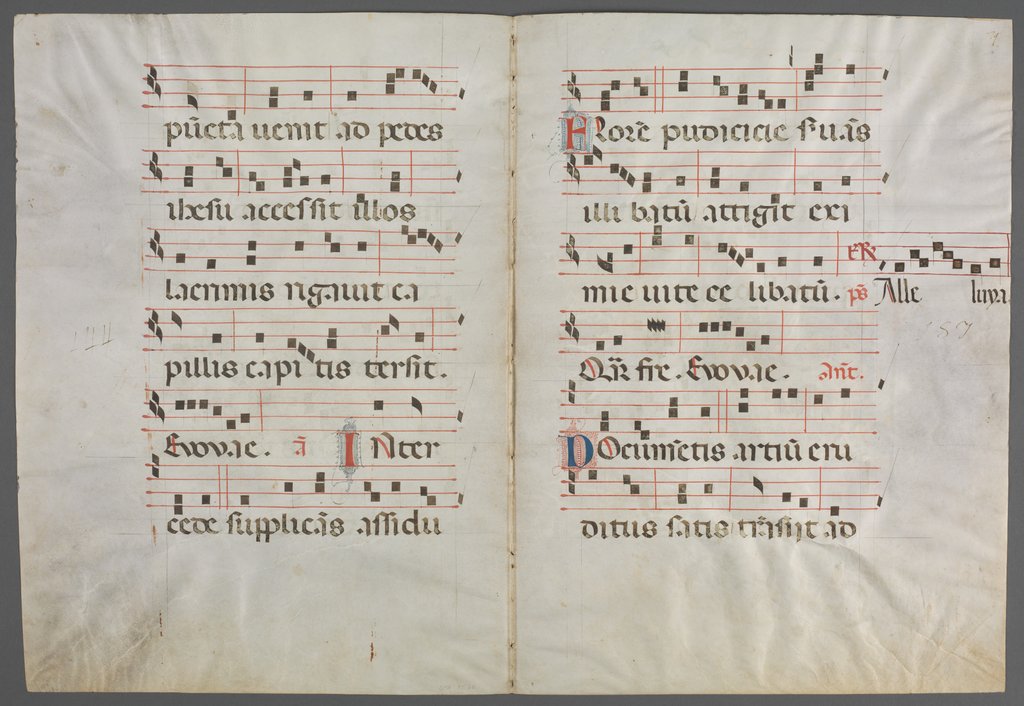 pūcta uenit ad pedes
ihesu accessit illos
lacrimis rigauit ca
pillis capi tis tersit.
Evovae. ā INter
cede supplicās assidu
FLorē pudicicie suāns
illi batū attigit exi
mie uite ce libatū. ps Alle luya
Qr̄ fre. Evovae. ānt.
DOcumētis artiū eru
ditus satis trāsiit ad